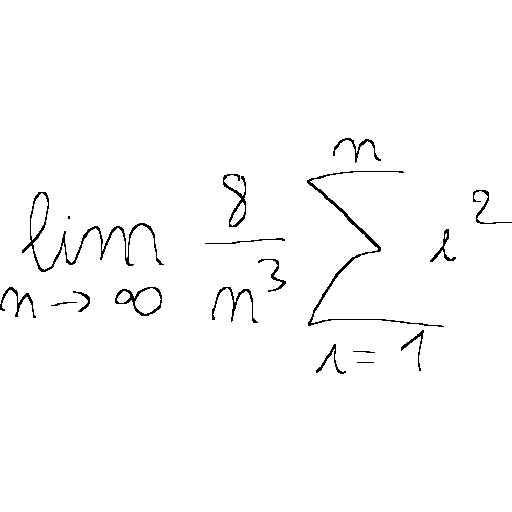 \lim_{n \to \infty} \frac{8}{n^3} \sum_{i=1}^{n} i^2